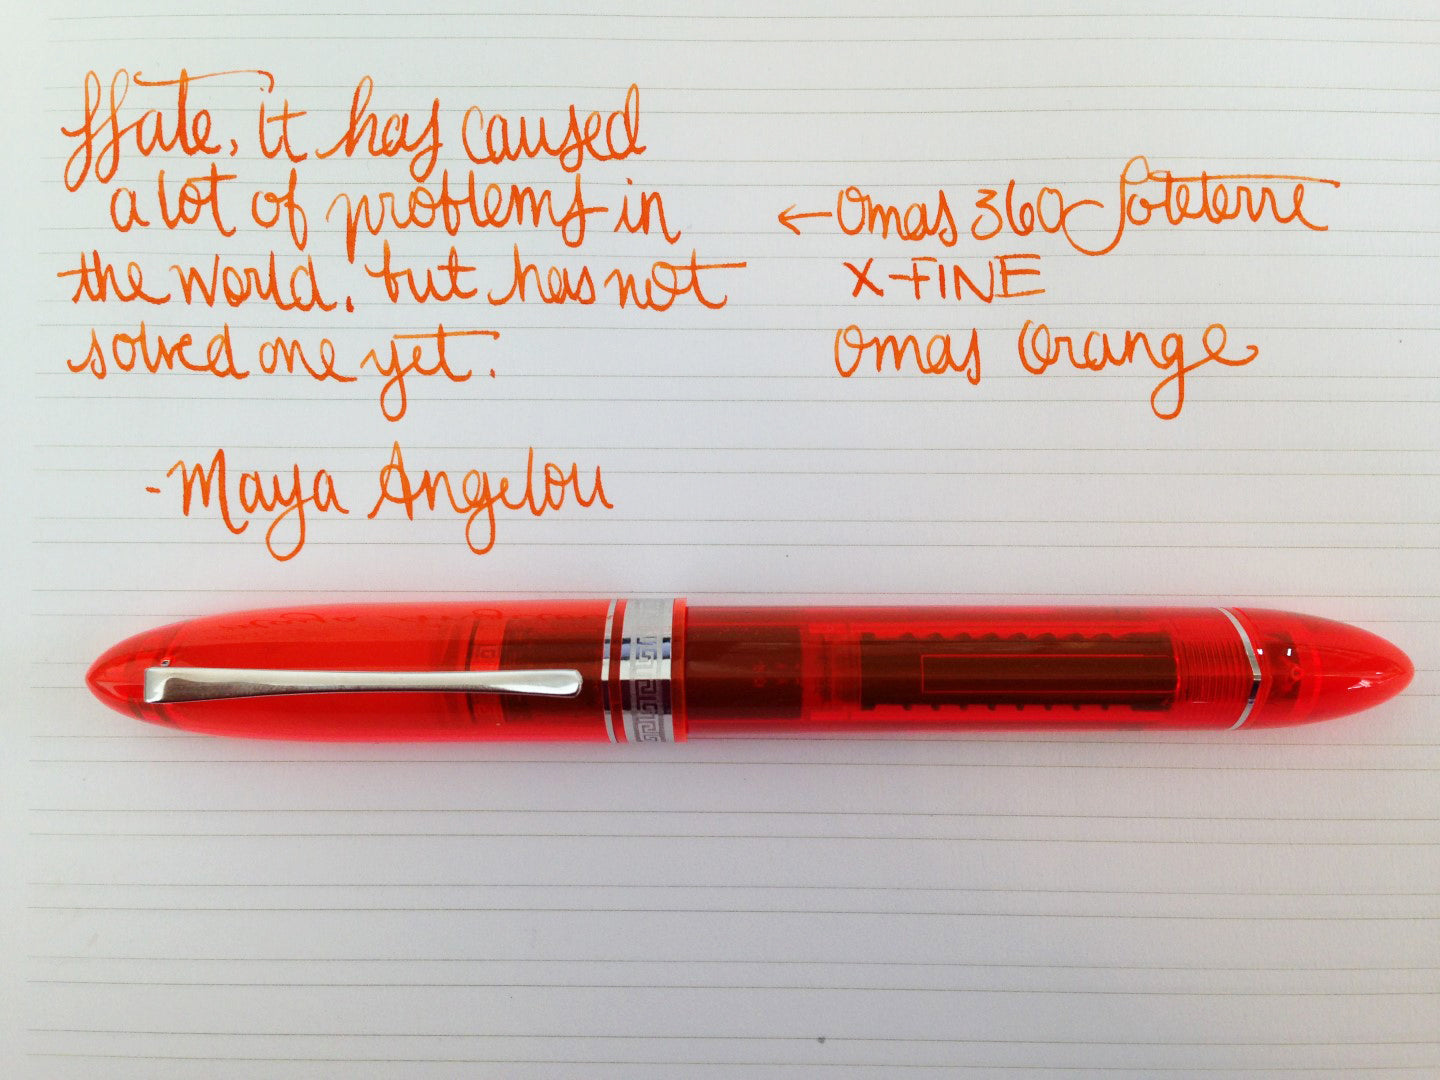 Hate, it has caused
a lot of problems in
the world, but has not
solved one yet.
-Maya Angelou
←Omas 360 Soteterre
X-FINE
Omas Orange